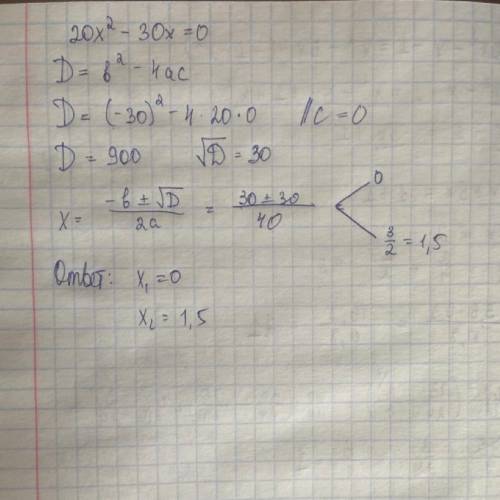 20x² - 30x = 0
D = b² - 4ac
D = (-30)² - 4 · 20 · 0 // C = 0
D = 900 √D = 30
x = (-b ± √D)/2a = (30 ± 30)/40 < 0
3/2 = 1,5
Ответ: x₁ = 0
x₂ = 1,5